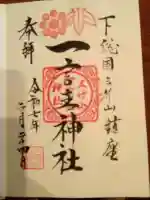 下総国三竹山鎮座
一言主神社
奉拝
令和七年